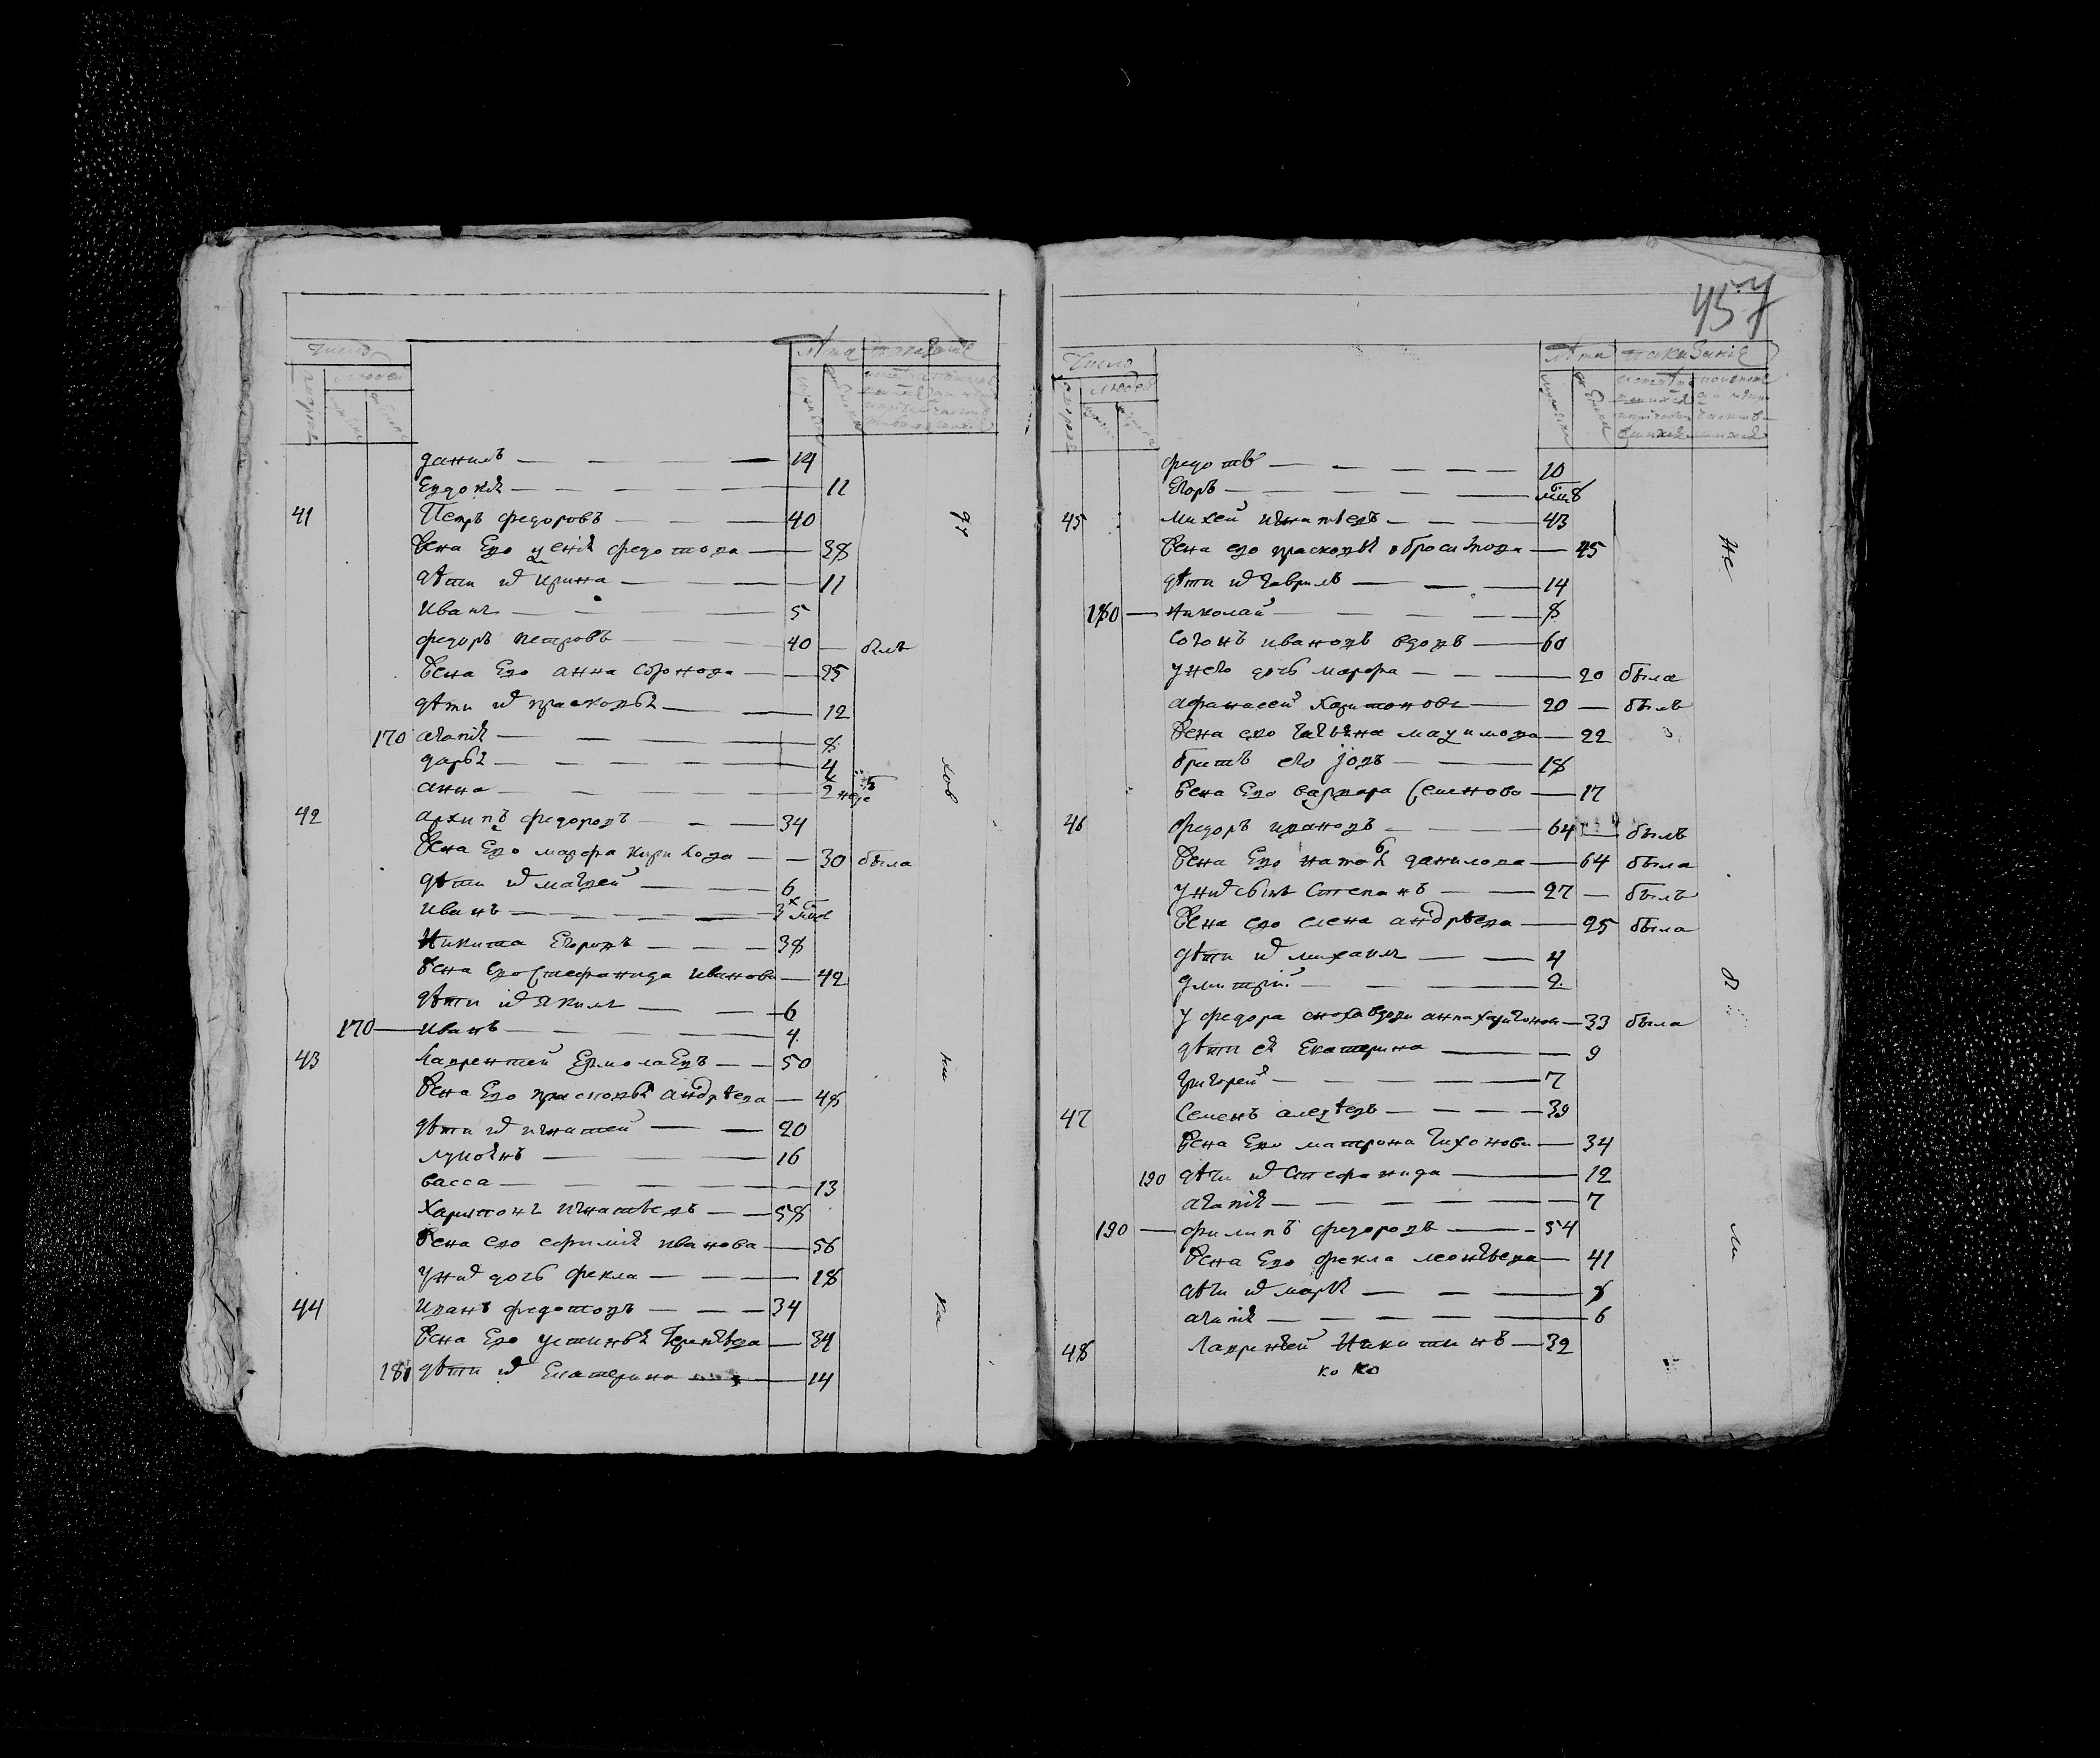 число
людей
лѣта
данилъ — 14
Евдокія — 11
41 Петръ федоровъ — 40
Жена Его ѯенія федотова — 38
дѣти ихъ ирина — 11
иванъ — 5
федоръ петровъ — 40 — былъ
Жена Его анна софонова — 25
дѣти ихъ прасковья — 12
170 агапія — 8
дарья — 4
анна — 2 неде
42 архипъ федоровъ — 34
Жена Его марфа кирилова — 30 была
дѣти ихъ матвей — 6
иванъ — 3 мца
Никита Егоровъ — 38
Жена Его Стефанида иванова — 42
дѣти ихъ якимъ — 6
170 — иванъ — 4
43 лаврентей ЕрмолаЕвъ — 50
Жена Его прасковья андрѣева — 48
дѣти ихъ игнатей — 20
лукоянъ — 16
васса — 13
Харитонъ игнатьевъ — 58
Жена Его ефимія иванова — 56
у них дочь фекла — 18
44 иванъ федотовъ — 34
Жена Его устинья терентьева — 34
181 дѣти ихъ Екатерина — 14
ду
хов
ни
ка
457
Число
людей
лѣта показаніе
федотъ — 10
Егоръ — 6 мцъ
45 михей игнатьевъ — 43
Жена его прасковья абросимова — 45
дѣти ихъ гаврилъ — 14
180 — Николай — 8
софонъ ивановъ вдовъ — 60
у него дочь марфа — 20 была
афанасей Харитоновъ — 20 — былъ
Жена его татьяна маѯимова — 22
братъ его іовъ — 18
Жена Его варвара Семенова — 17
46 федоръ ивановъ — 64 — былъ
Жена Его наталья данилова — 64 была
у них сынъ Степанъ — 27 — былъ
Жена его елена андрѣева — 25 была
дѣти ихъ михаилъ — 4
дмитрій — 2
у федора сноха вдова анна харитонова — 33 была
дѣти ея Екатерина — 9
григорей — 7
47 Семенъ алеѯѣевъ — 39
Жена Его матрона тихонова — 34
190 дѣти ихъ Стефанида — 12
агапія — 7
190 — филипъ федоровъ — 54
Жена Его фекла леонтьева — 41
дѣти ихъ марья — 8
агапія — 6
48 лаврентей Никитинъ — 32
ко ко
не
б
ли